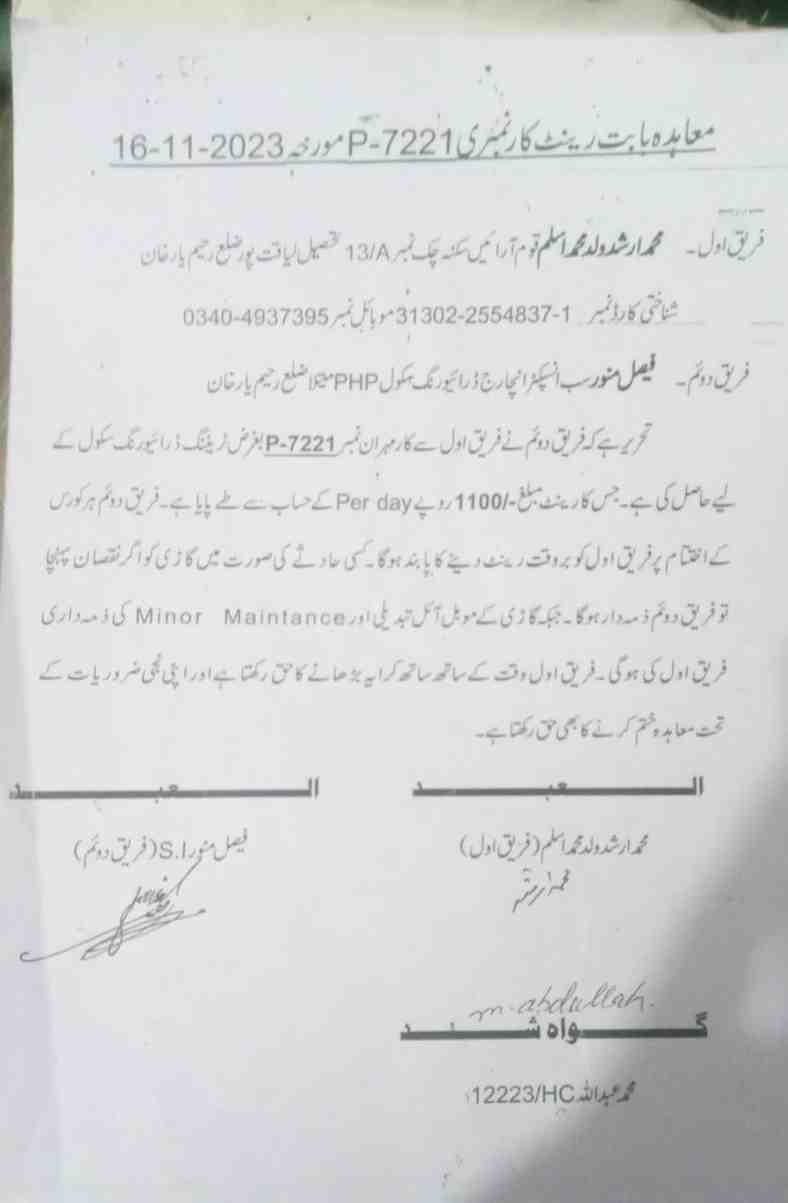 معاہدہ بابت رینٹ کار نمبری P-7221 مورخہ 16-11-2023
فریق اول۔ محمد ارشد ولد محمد اسلم قوم آرائیں سکنہ چک نمبر 13/A تحصیل لیاقت پور ضلع رحیم یار خان
شناختی کارڈ نمبر 31302-2554837-1 موبائل نمبر 0340-4937395
فریق دوئم۔ فیصل منور سب انسپکٹر انچارج ڈرائیورنگ سکول PHP ضلع رحیم یار خان
تحریر ہے کہ فریق دوئم نے فریق اول سے کار مہران نمبر P-7221 بغرض ٹریننگ ڈرائیورنگ سکول کے
لیے حاصل کی ہے۔ جس کا رینٹ مبلغ -/1100 روپے Per day کے حساب سے طے پایا ہے۔ فریق دوئم ہر کورس
کے اختتام پر فریق اول کو بروقت رینٹ دینے کا پابند ہوگا۔ کسی حادثے کی صورت میں گاڑی کو اگر نقصان پہنچا
تو فریق دوئم ذمہ دار ہوگا۔ جبکہ گاڑی کے موبل آئل تبدیلی اور Minor Maintance کی ذمہ داری
فریق اول کی ہوگی۔ فریق اول وقت کے ساتھ ساتھ کرایہ بڑھانے کا حق رکھتا ہے اور اپنی نجی ضروریات کے
تحت معاہدہ ختم کرنے کا بھی حق رکھتا ہے۔
العبد
العبد
محمد ارشد ولد محمد اسلم (فریق اول)
فیصل منور S.I (فریق دوئم)
محمد ارشد
m-abdullah.
گواہ شد
محمد عبداللہ 12223/HC